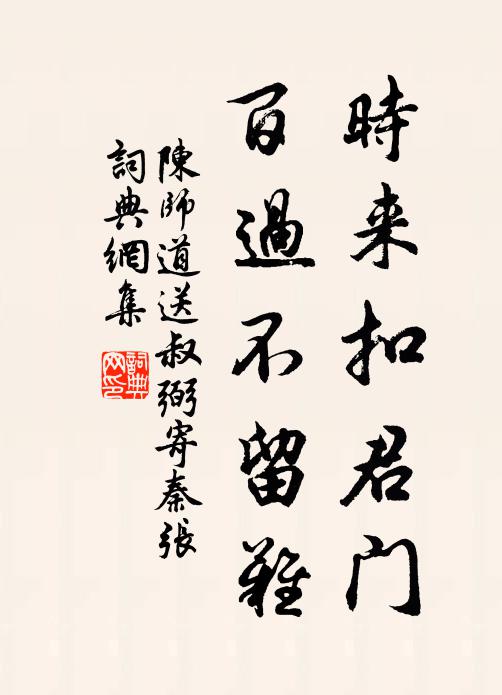 時来扣君門
百過不留難
陳師道送叔弼寄秦張
詞典網集
詞典網印